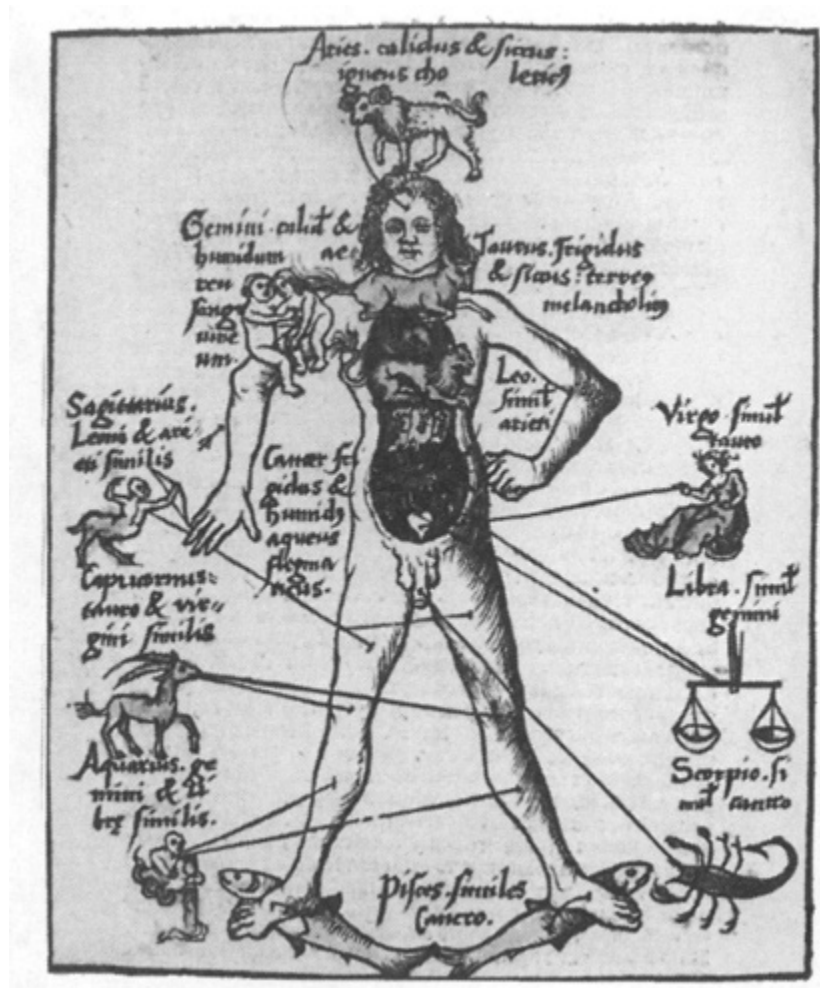 Aries. calidus & siccus:
igneus cho lericꝰ
Gemini. calid' &
humidum ae
reu
sang
uine
um.
Taurus. frigidus
& siccus: terreꝰ
melancholicꝰ
Leo.
simil'
arieti
Sagittarius.
Leoni & ari
eti similis
Cancer fri
gidus &
humidꝰ
aqueus
flegma
ticus.
Virgo. simil'
tauro
Capricornus:
tauro & vir=
gini similis
Libra. simil'
gemini
Aquarius. ge
mini & li
brę similis.
Scorpio. si
mil' cancro
Pisces. similes
Cancro.